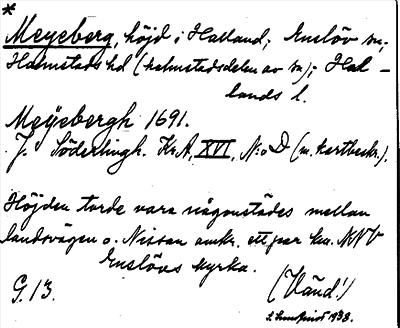 *
Meyeberg, höjd i Halland; Enslöv sn;
Halmstads hd (halmstadsdelen av sn); Hal-
lands l.
Meÿebergh 1691.
J. Söderlingh. Kr.A, XVI, N:o D (m. kartbeskr.).
Höjden torde vara någonstädes mellan
landsvägen o. Nissan omkr. ett par km. NNV
Enslövs kyrka.
G.13.
(Vänd!)
1938.